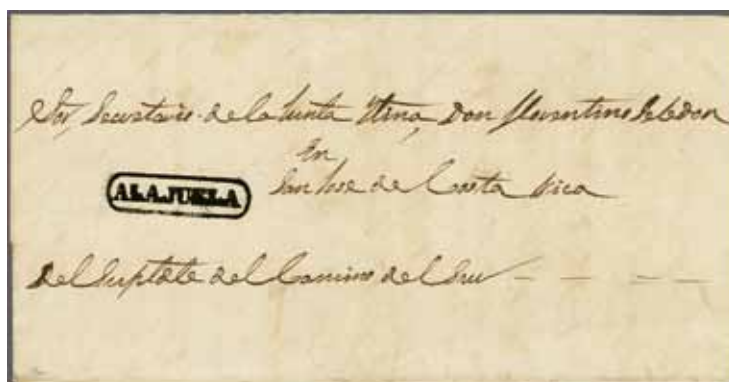 Sor, Secretario de la Junta Itina, Don Florentino Seledon
En
San Jose de Costa Rica
ALAJUELA
del Suptdte del Camino del Sur